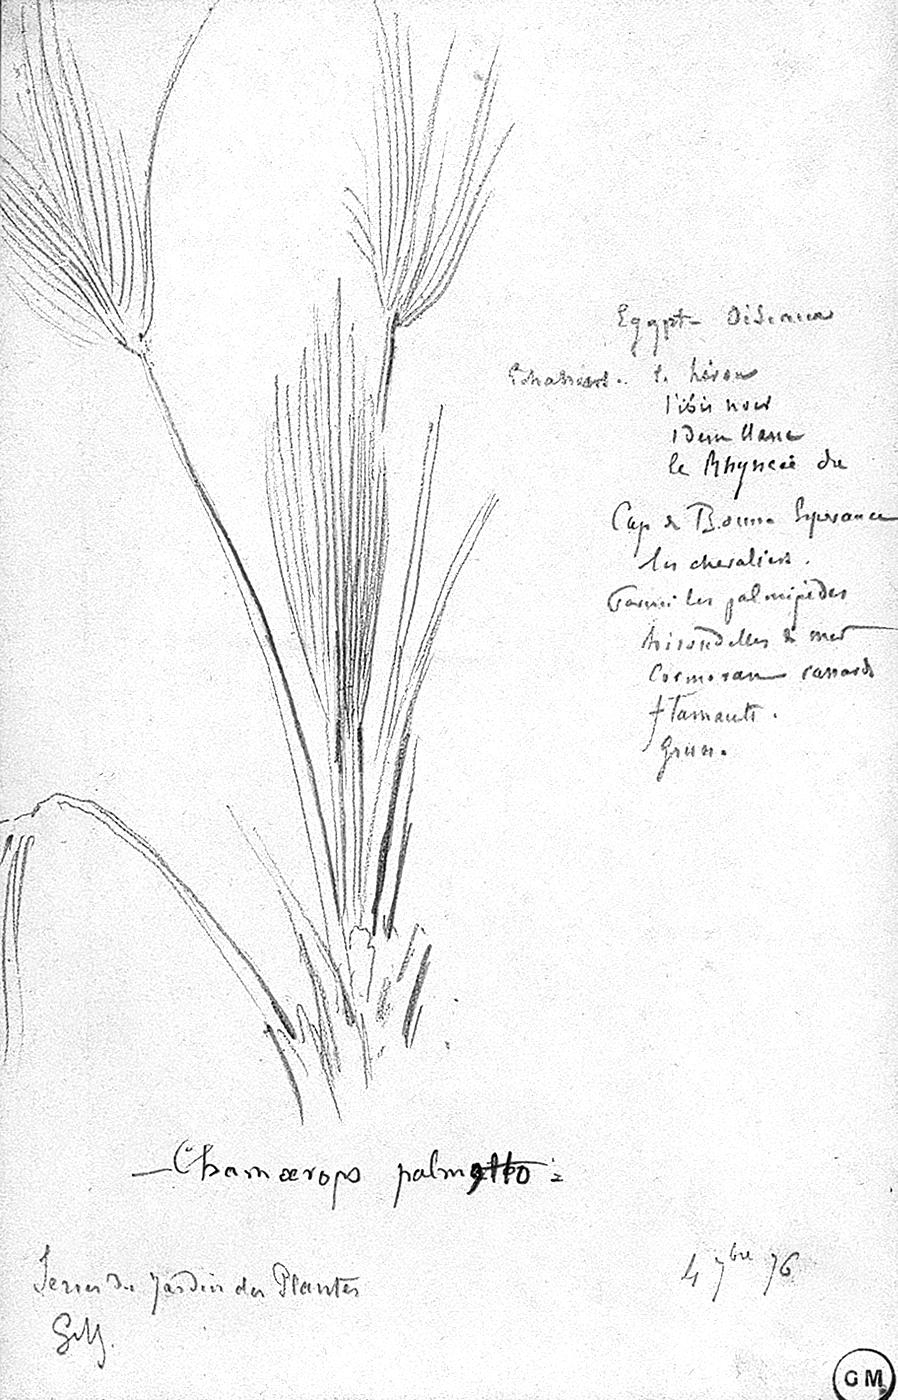 Egypt - Oiseaux
Echassiers. le héron
l'ibis noir
idem blanc
le Rhyncée du
Cap de Bonne Espérance
les chevaliers.
Parmi les palmipèdes
hirondelles de mer
Cormoran canards
flamants.
Grues.
— Chamærops palmetto =
Serres du Jardin des Plantes
GM.
4 7bre 76
GM